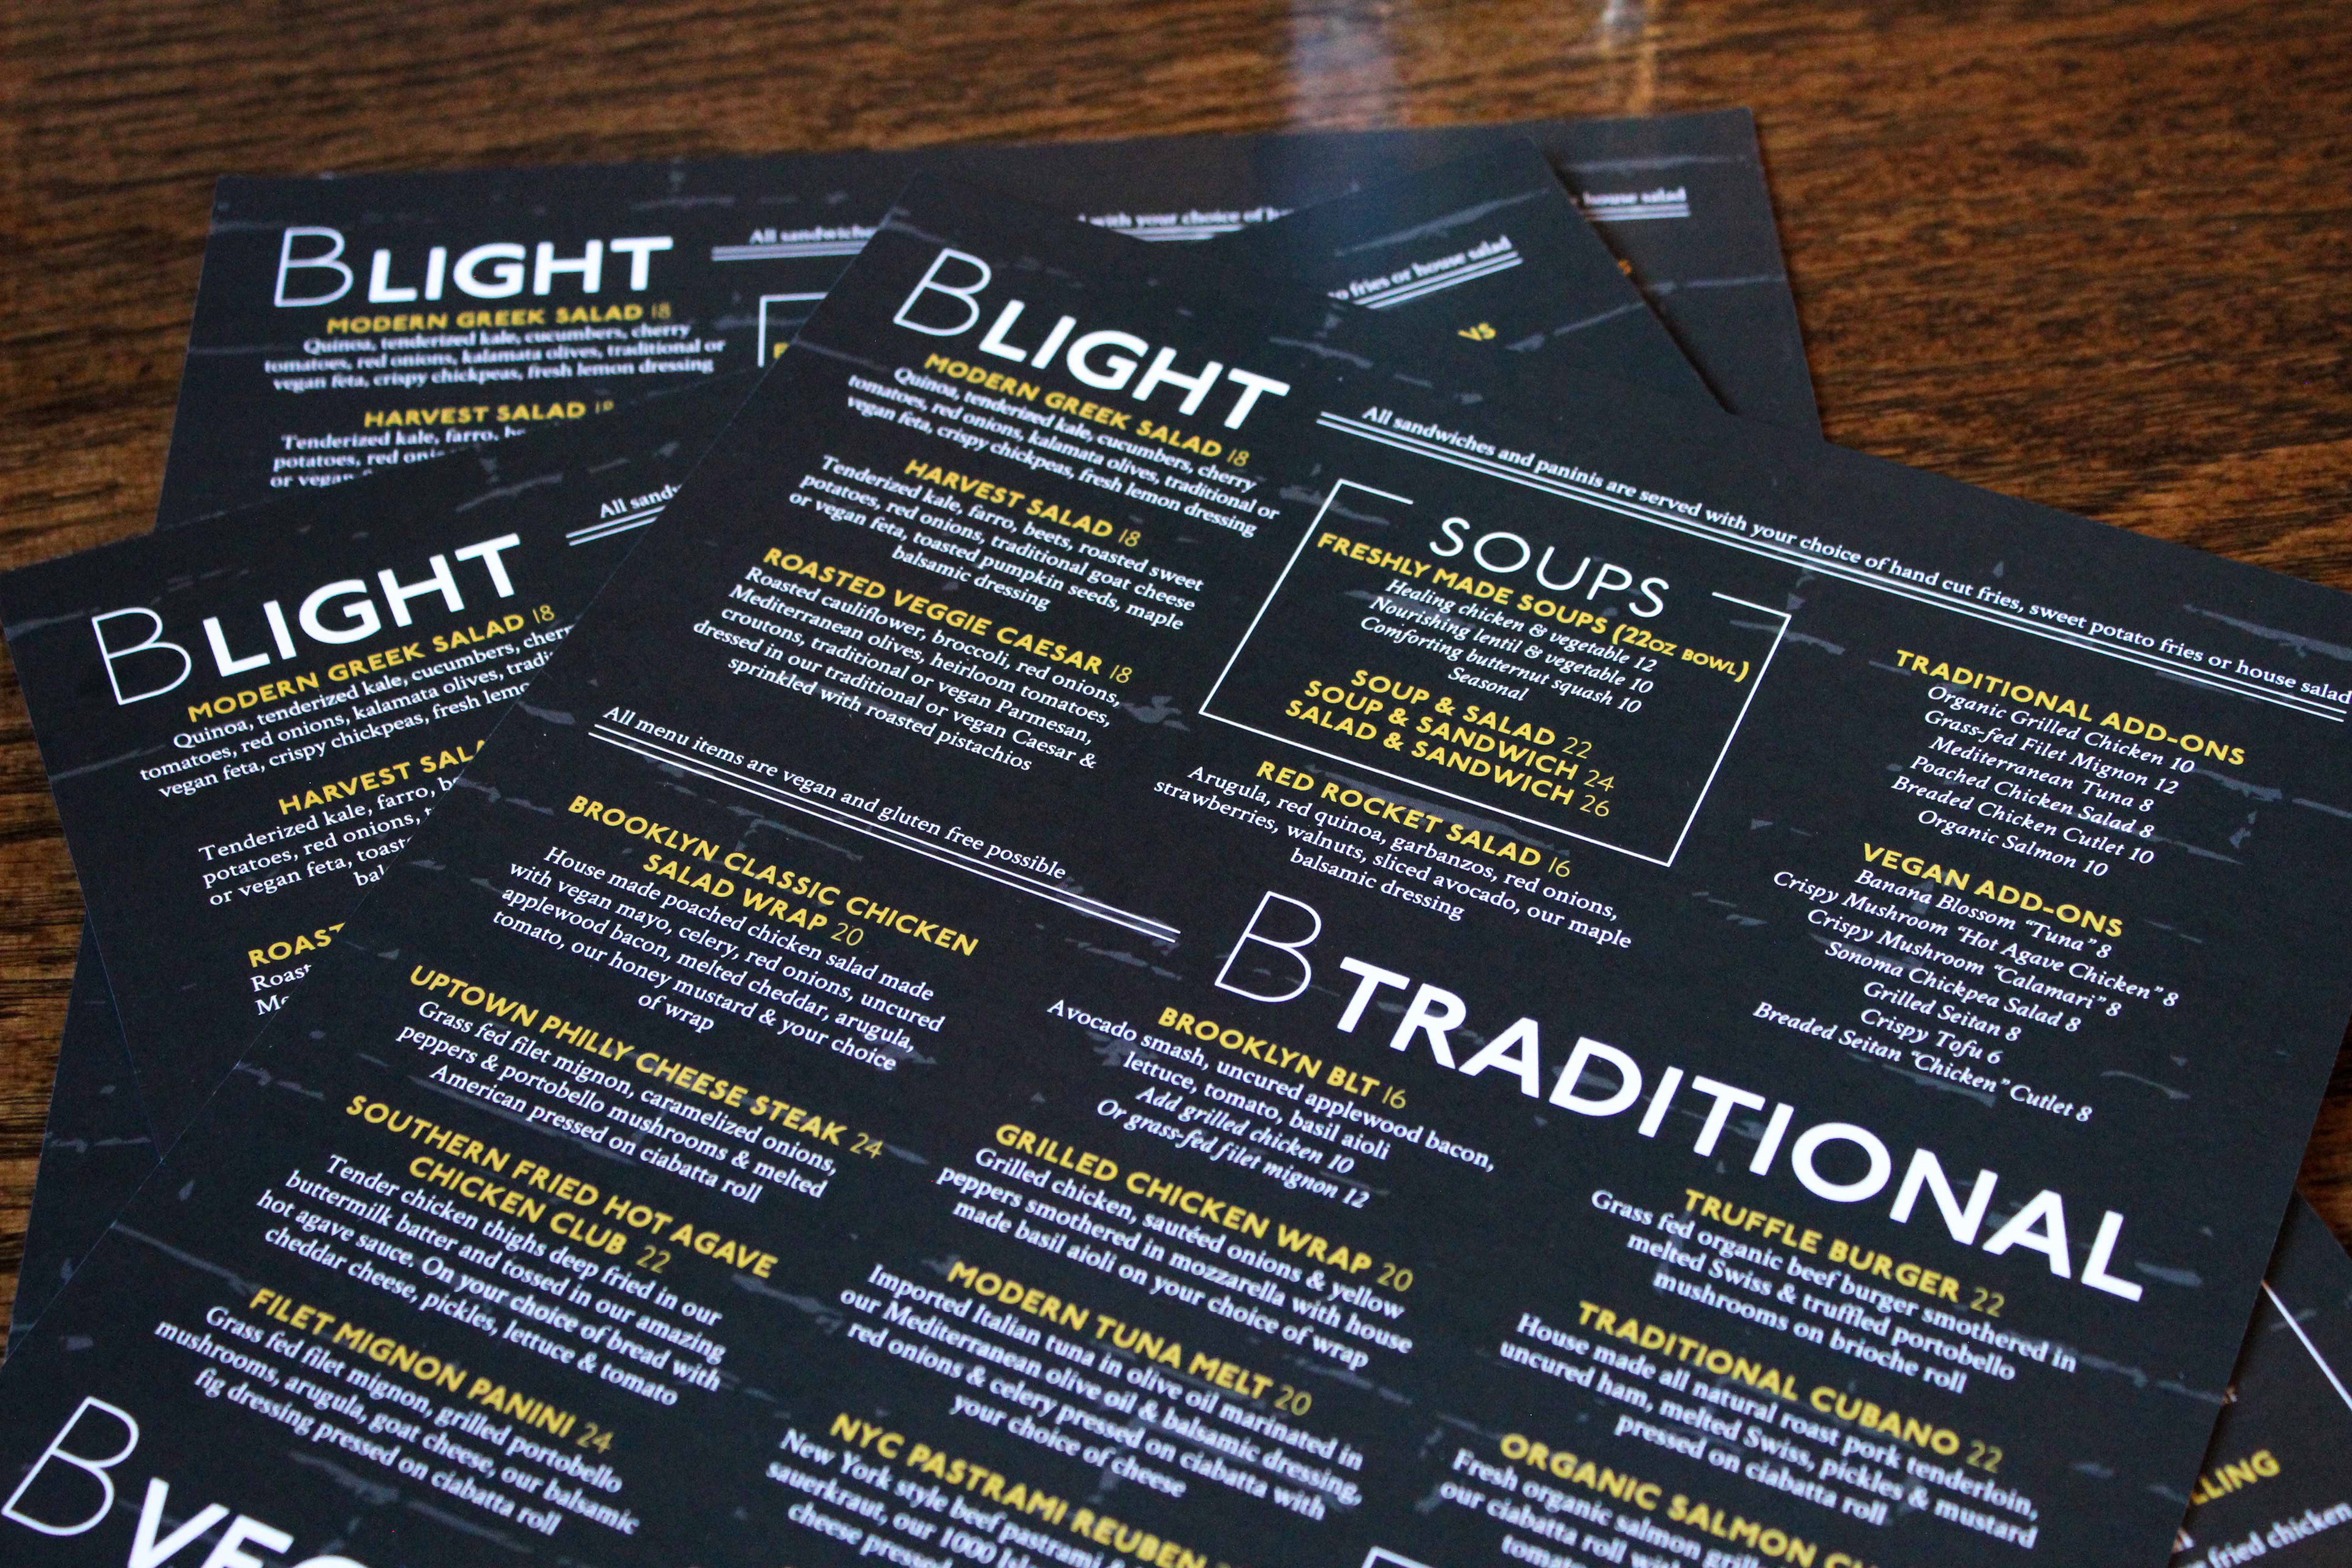 BLIGHT
MODERN GREEK SALAD 18
Quinoa, tenderized kale, cucumbers, cherry
tomatoes, red onions, kalamata olives, traditional or
vegan feta, crispy chickpeas, fresh lemon dressing
HARVEST SALAD 18
Tenderized kale, farro,
potatoes, red
or vegan
All sandwiches
with your choice of
house salad
to fries or house salad
VS
BLIGHT
MODERN GREEK SALAD 18
Quinoa, tenderized kale, cucumbers,
tomatoes, red onions, kalamata olives,
vegan feta, crispy chickpeas, fresh
HARVEST
Tenderized kale, farro,
potatoes, red onions,
or vegan feta,
All
BLIGHT
MODERN GREEK SALAD 18
Quinoa, tenderized kale, cucumbers, cherry
tomatoes, red onions, kalamata olives, traditional or
vegan feta, crispy chickpeas, fresh lemon dressing
HARVEST SALAD 18
Tenderized kale, farro, beets, roasted sweet
potatoes, red onions, traditional goat cheese
or vegan feta, toasted pumpkin seeds, maple
balsamic dressing
ROASTED VEGGIE CAESAR 18
Roasted cauliflower, broccoli, red onions,
Mediterranean olives, heirloom tomatoes,
croutons, traditional or vegan Parmesan,
dressed in our traditional or vegan Caesar &
sprinkled with roasted pistachios
All sandwiches and paninis are served with your choice of hand cut fries, sweet potato fries or house salad
SOUPS
FRESHLY MADE SOUPS (22OZ BOWL)
Healing chicken & vegetable 12
Nourishing lentil & vegetable 10
Comforting butternut squash 10
Seasonal
SOUP & SALAD 22
SOUP & SANDWICH 24
SALAD & SANDWICH 26
RED ROCKET SALAD 16
Arugula, red quinoa, garbanzos, red onions,
strawberries, walnuts, sliced avocado, our maple
balsamic dressing
TRADITIONAL ADD-ONS
Organic Grilled Chicken 10
Grass-fed Filet Mignon 12
Mediterranean Tuna 8
Poached Chicken Salad 8
Breaded Chicken Cutlet 10
Organic Salmon 10
VEGAN ADD-ONS
Banana Blossom “Tuna” 8
Crispy Mushroom “Hot Agave Chicken” 8
Crispy Mushroom “Calamari” 8
Sonoma Chickpea Salad 8
Grilled Seitan 8
Crispy Tofu 6
Breaded Seitan “Chicken” Cutlet 8
All menu items are vegan and gluten free possible
BTRADITIONAL
BROOKLYN CLASSIC CHICKEN
SALAD WRAP 20
House made poached chicken salad made
with vegan mayo, celery, red onions, uncured
applewood bacon, melted cheddar, arugula,
tomato, our honey mustard & your choice
of wrap
UPTOWN PHILLY CHEESE STEAK 24
Grass fed filet mignon, caramelized onions,
peppers & portobello mushrooms & melted
American pressed on ciabatta roll
SOUTHERN FRIED HOT AGAVE
CHICKEN CLUB 22
Tender chicken thighs deep fried in our
buttermilk batter and tossed in our amazing
hot agave sauce. On your choice of bread with
cheddar cheese, pickles, lettuce & tomato
FILET MIGNON PANINI 24
Grass fed filet mignon, grilled portobello
mushrooms, arugula, goat cheese, our balsamic
fig dressing pressed on ciabatta roll
BROOKLYN BLT 16
Avocado smash, uncured applewood bacon,
lettuce, tomato, basil aioli
Add grilled chicken 10
Or grass-fed filet mignon 12
GRILLED CHICKEN WRAP 20
Grilled chicken, sautéed onions & yellow
peppers smothered in mozzarella with house
made basil aioli on your choice of wrap
MODERN TUNA MELT 20
Imported Italian tuna in olive oil marinated in
our Mediterranean olive oil & balsamic dressing,
red onions & celery pressed on ciabatta with
your choice of cheese
NYC PASTRAMI REUBEN
New York style beef pastrami
sauerkraut, our 1000
cheese pressed
TRUFFLE BURGER 22
Grass fed organic beef burger smothered in
melted Swiss & truffled portobello
mushrooms on brioche roll
TRADITIONAL CUBANO 22
House made all natural roast pork tenderloin,
uncured ham, melted Swiss, pickles & mustard
pressed on ciabatta roll
ORGANIC SALMON
Fresh organic salmon
our ciabatta roll
fried chicken